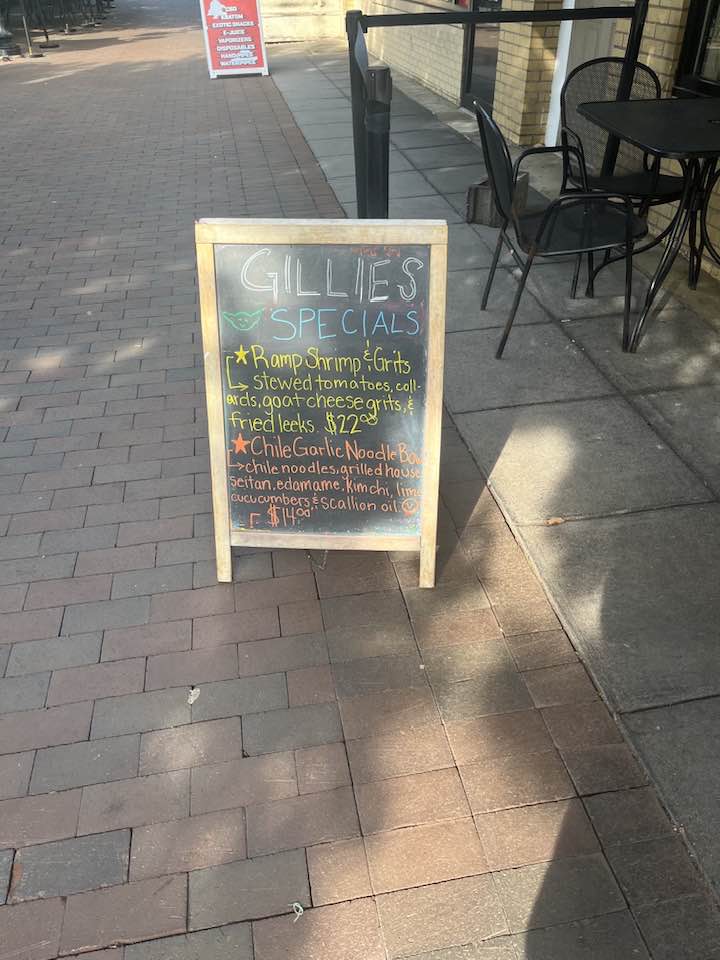 CBD
KRATOM
EXOTIC SNACKS
E-JUICE
VAPORIZERS
DISPOSABLES
HAND PIPES
WATERPIPES
GILLIES
SPECIALS
Ramp Shrimp & Grits
stewed tomatoes, coll-
ards, goat cheese grits, &
fried leeks. $22.00
Chile Garlic Noodle Bowl
chile noodles, grilled house
seitan, edamame, kimchi, lime
cucucumbers & scallion oil.
$14.00